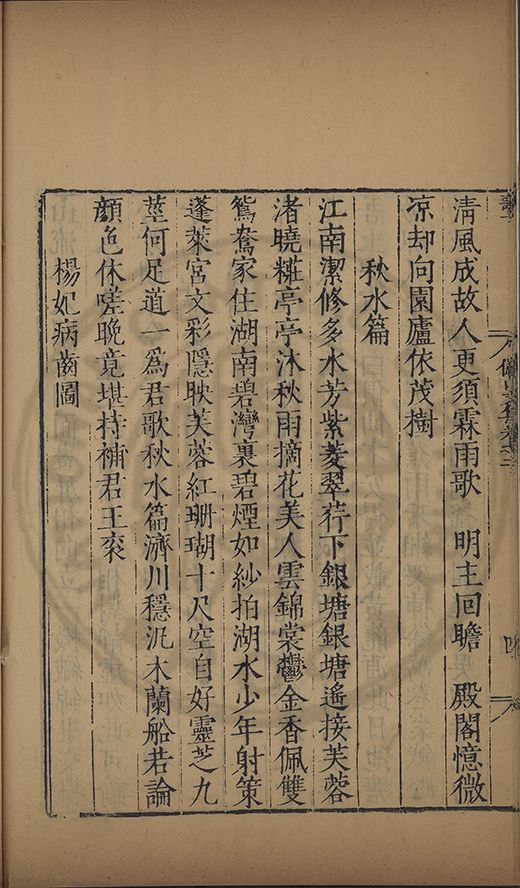 清風成故人更須霖雨歌　明主回瞻　殿閣憶微
凉却向園廬依茂樹
秋水篇
江南潔修多水芳紫菱翠荇下銀塘銀塘遙接芙蓉
渚曉糚亭亭沐秋雨摘花美人雲錦裳鬱金香佩雙
鴛鴦家住湖南碧灣裏碧煙如紗拍湖水少年射策
蓬萊宮文彩隱映芙蓉紅珊瑚十尺空自好靈芝九
莖何足道一爲君歌秋水篇濟川穩汎木蘭船若論
顔色休嗟晚竟堪持補君王衮
楊妃病齒圖